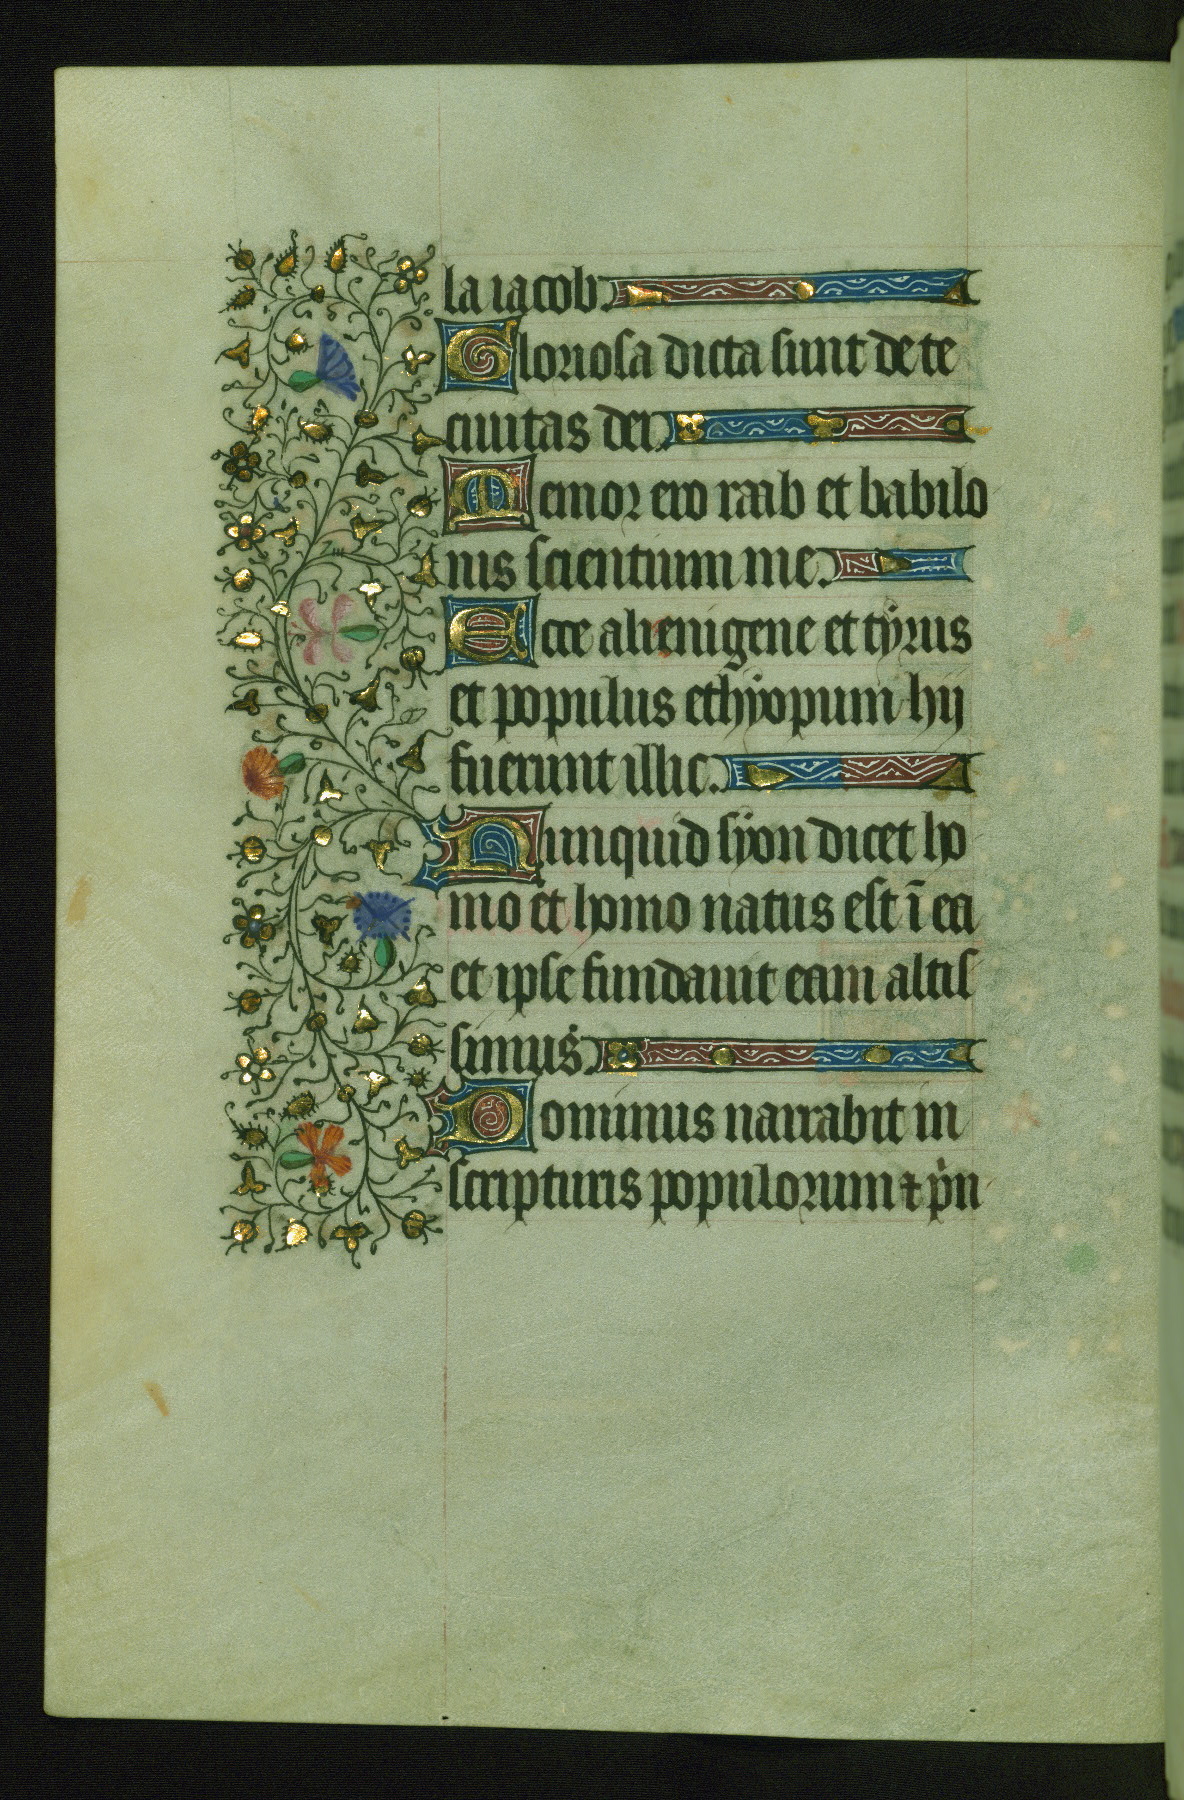 la iacob.
Gloriosa dicta sunt de te
ciuitas dei.
Memor ero raab et babilo
nis scientium me.
Ecce alienigene et tyrus
et populus ethyopum hij
fuerunt illic.
Nunquid syon dicet ho
mo et homo natus est ī ea
et ipse fundauit eam altis
simus.
Dominus narrabit in
scripturis populorum ⁊ pͥn